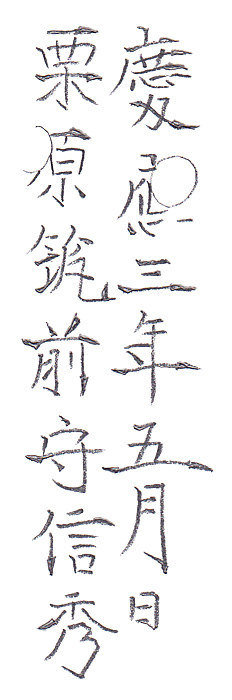 慶應三年五月日
栗原筑前守信秀